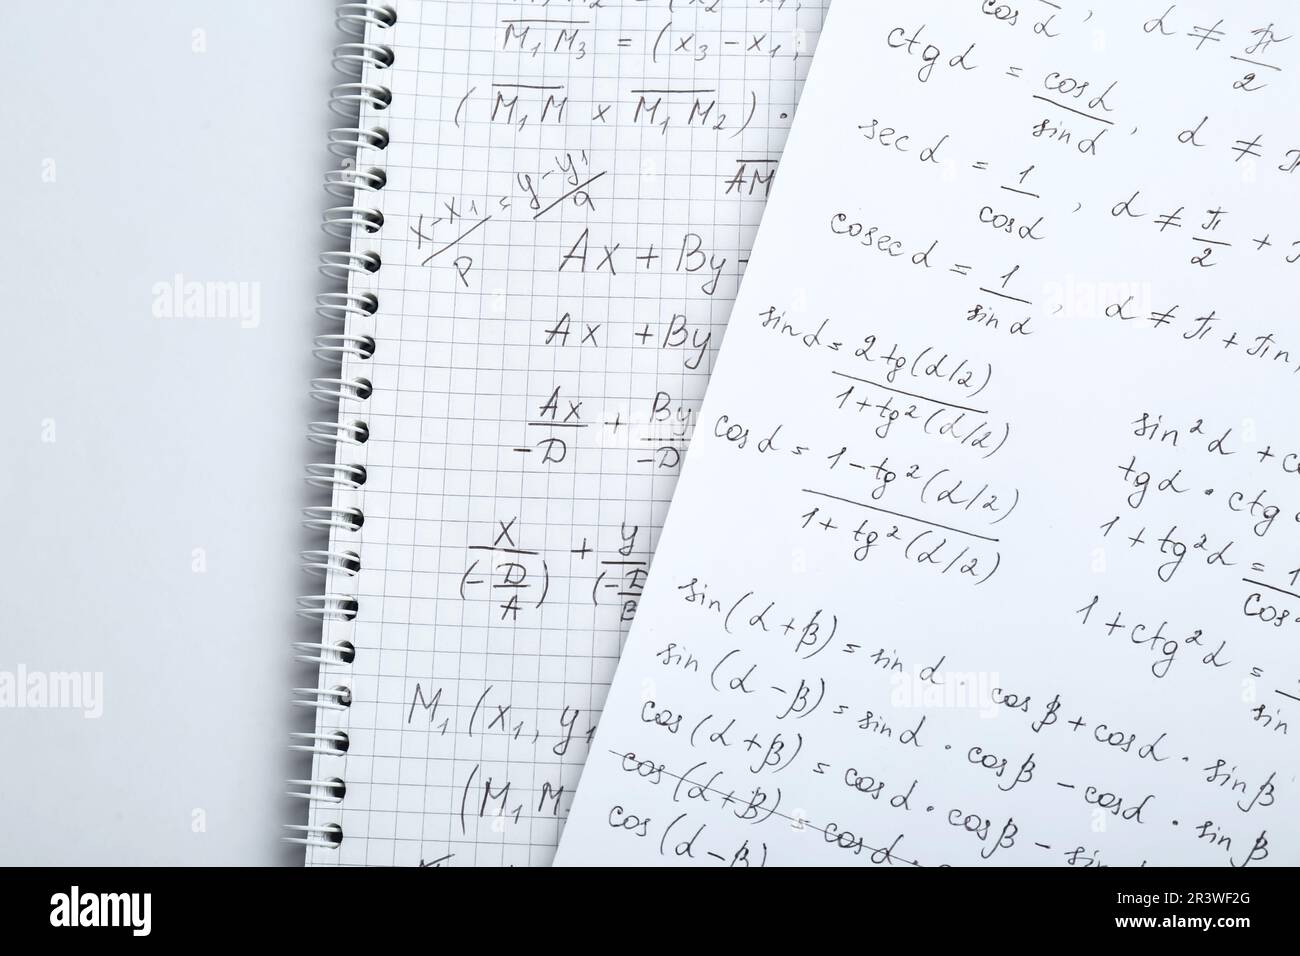 M₁M₃ = (x₃ - x₁;
(M₁M × M₁M₂) ·
AM
(x - x₁)/p = (y - y₁)/a
Ax + By -
Ax + By
Ax/-D + By/-D
x/(-D/A) + y/(-D/B
M₁(x₁, y₁
(M₁M
cos α, α ≠ π/2
ctg α = cos α/sin α, α ≠ π
sec α = 1/cos α, α ≠ π/2 + π
cosec α = 1/sin α, α ≠ π + πn,
sin α = 2tg(α/2)/1+tg²(α/2)
cos α = 1-tg²(α/2)/1+tg²(α/2)
sin²α + c
tg α · ctg
1 + tg²α = 1/cos
1 + ctg²α = /sin
sin(α+β) = sin α · cos β + cos α · sin β
sin(α-β) = sin α · cos β - cos α · sin β
cos(α+β) = cos α · cos β - sin
cos(α+β) = cos α ·
cos(α-β)
alamy
alamy
alamy
alamy
a
a
a
a
a
alamy
Image ID: 2R3WF2G
www.alamy.com